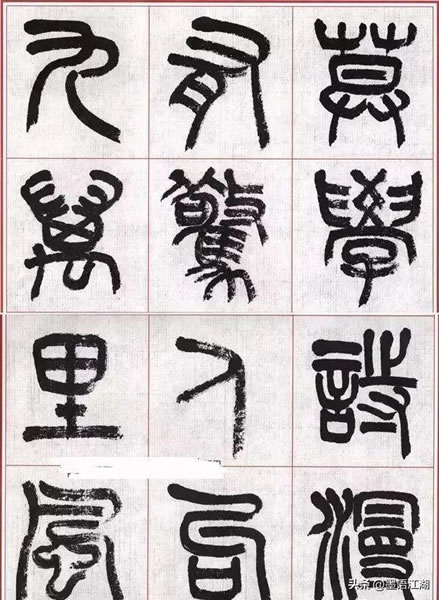 莫學詩漫
有驚人句
九萬里風
头条 @墨语江湖